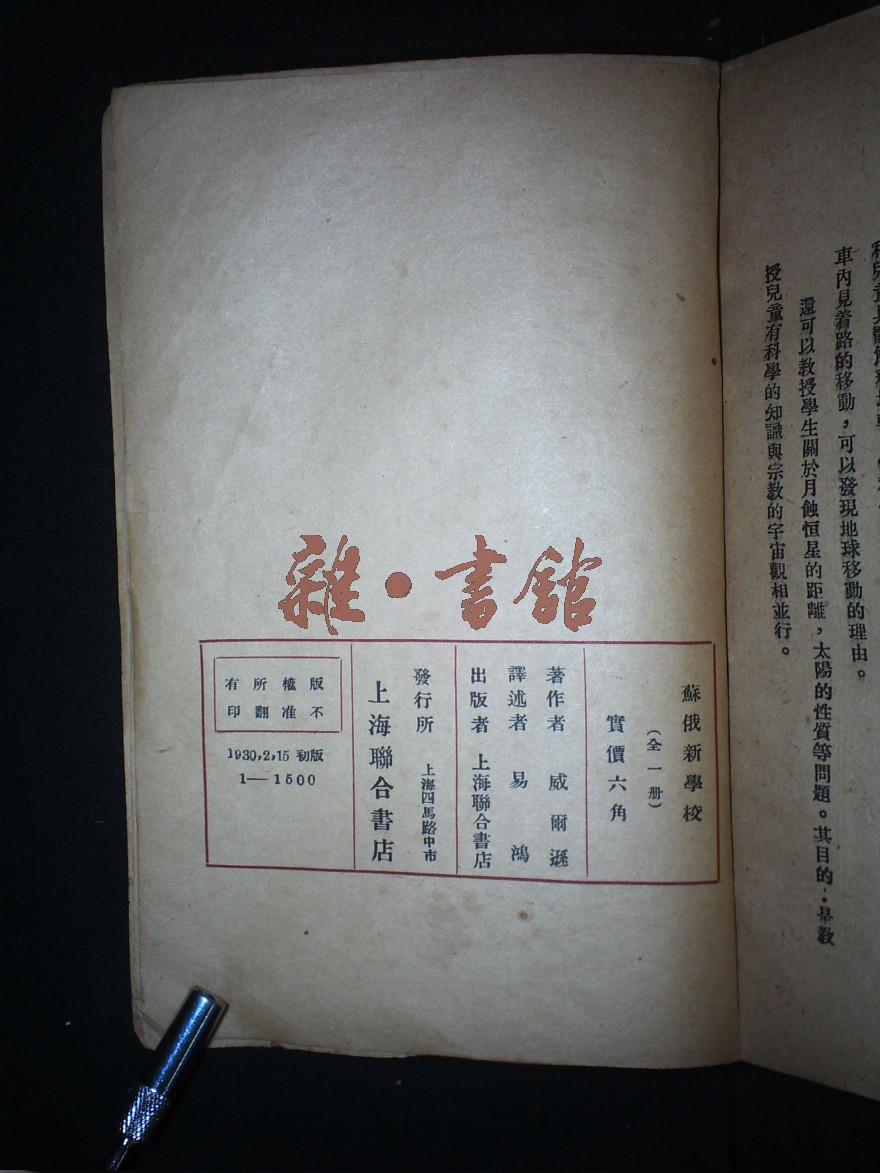 車內見着路的移動，可以發現地球移動的理由。
還可以教授學生關於月蝕恒星的距離，太陽的性質等問題。其目的：是教
授兒童有科學的知識與宗教的宇宙觀相並行。
雜·書館
蘇俄新學校
（全一册）
實價六角
著作者 威爾遜
譯述者 易鴻
出版者 上海聯合書店
發行所 上海四馬路中市
上海聯合書店
版權所有
不准翻印
1930,2,15 初版
1—1500